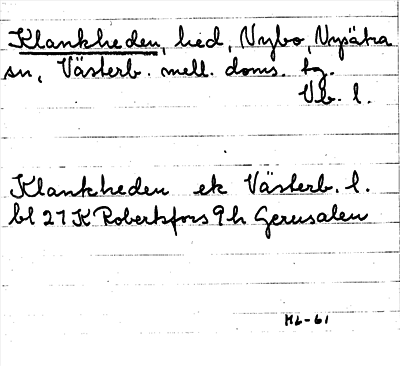 Klankheden, hed, Nybo, Nysätra
sn, Västerb. mell. doms. tg.
Vb. l.
Klankheden ek Västerb. l.
bl 21 K Robertsfors 9 h Gerusalen
M6-61